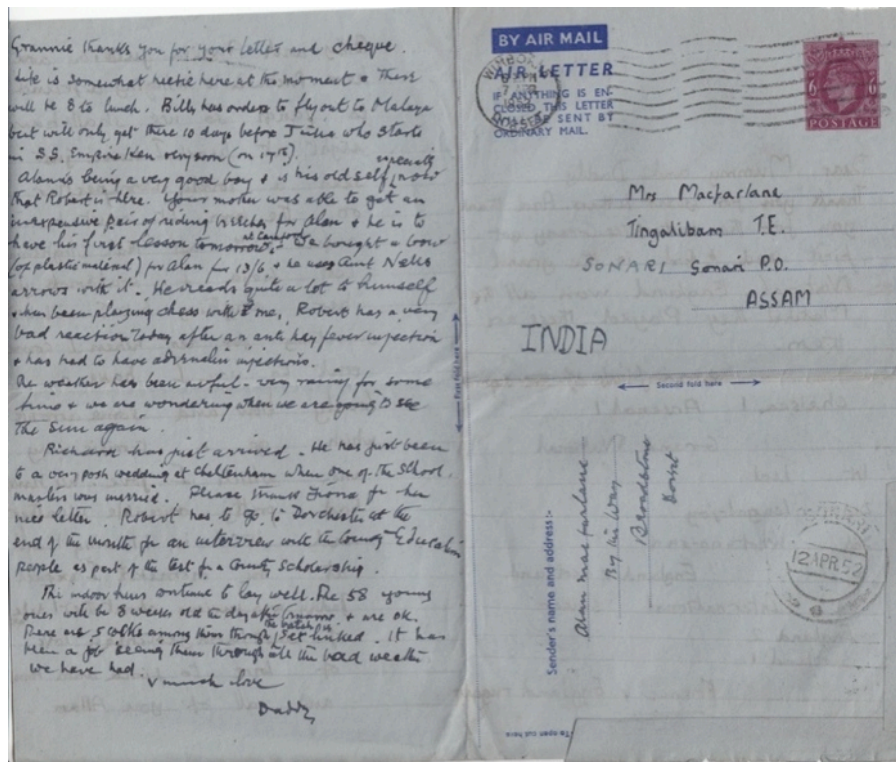 Grannie thanks you for your letter and cheque.
Life is somewhat hectic here at the moment & there
will be 8 to lunch. Billy has orders to fly out to Malaya
but will only get there 10 days before Julia who starts
in S.S. Empire Ken very soon (on 17th).
Alan is being a very good boy & is his old self, especially now
that Robert is here. Your mother was able to get an
inexpensive pair of riding breeches for Alan & he is to
have his first lesson tomorrow. We bought a bow
(of plastic material) for Alan for 13/6 & he uses Aunt Nell's
arrows with it. He reads quite a lot to himself
& has been playing chess with me. Robert has a very
bad reaction today after an anti hay fever injection
& has had to have adrenalin injections.
The weather has been awful - very rainy for some
time & we are wondering when we are going to see
the sun again.
Richard has just arrived. He has just been
to a very posh wedding at Cheltenham when one of the school
masters was married. Please thank Fiona for her
nice letter. Robert has to go to Dorchester at the
end of the month for an interview with the County Education
people as part of the test for a County Scholarship.
The indoor hens continue to lay well. The 58 young
ones will be 8 weeks old the day after tomorrow & are OK.
There are 5 among them though the batch is sex linked. It has
been a job seeing them through all the bad weather
we have had.
V much love
Daddy
BY AIR MAIL
AIR LETTER
IF ANYTHING IS EN-
CLOSED THIS LETTER
WILL BE SENT BY
ORDINARY MAIL.
6 6
POSTAGE
Mrs Macfarlane
Tingalibam T.E.
SONARI Sonari P.O.
ASSAM
INDIA
First fold here
Second fold here
Sender's name and address:-
Alan Macfarlane
By the Way
Broadstone
Dorset
12 APR 52
To open cut here